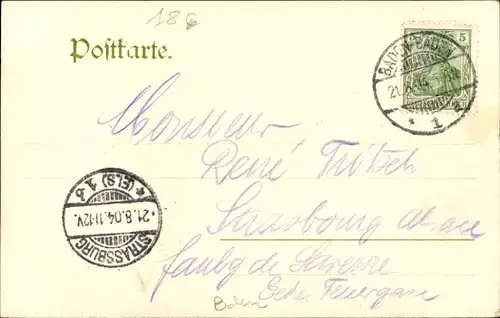 18G
Postkarte.
5
BADEN-BADEN
21.8.04
* 1 a
Monsieur
René Fritsch
Strasbourg Alsace
faubg de Saverne
Ecke Feuergasse
Baden
* (ELS) 1 b
21.8.04.11-12V.
STRASSBURG